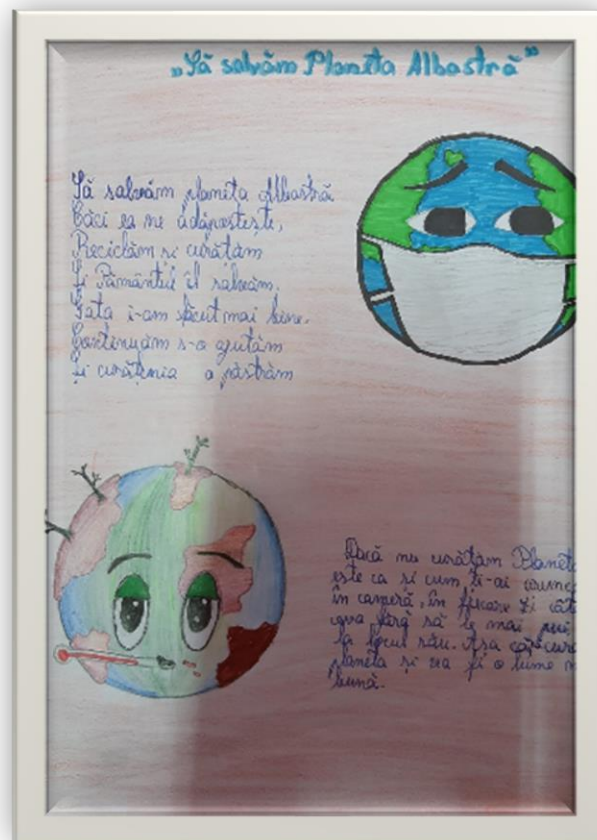 „Să salvăm Planeta Albastră”
Să salvăm planeta Albastră
Căci ea ne adăpostește,
Reciclăm și curățăm
Și Pământul îl salvăm.
Iată i-am făcut mai bine.
Continuăm s-o ajutăm
Și curățenia o păstrăm
Dacă nu curățăm Planeta
este ca și cum ți-ai
în cameră, în fiecare zi
fără să le mai pui
la locul său. Așa că
planeta și va fi o lume
bună.